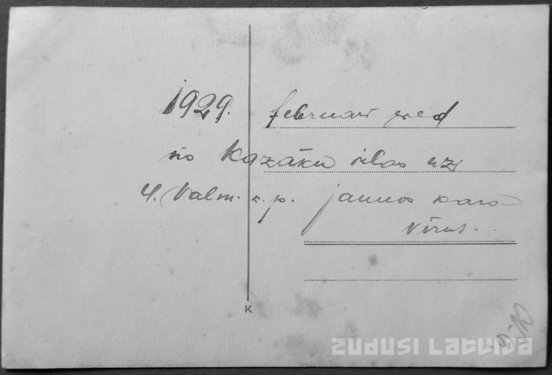 1929. februarī ved
no Kazāku silas uz
4. Valm. k. p. jaunos kara
vīrus.
K
zudusi Latvija